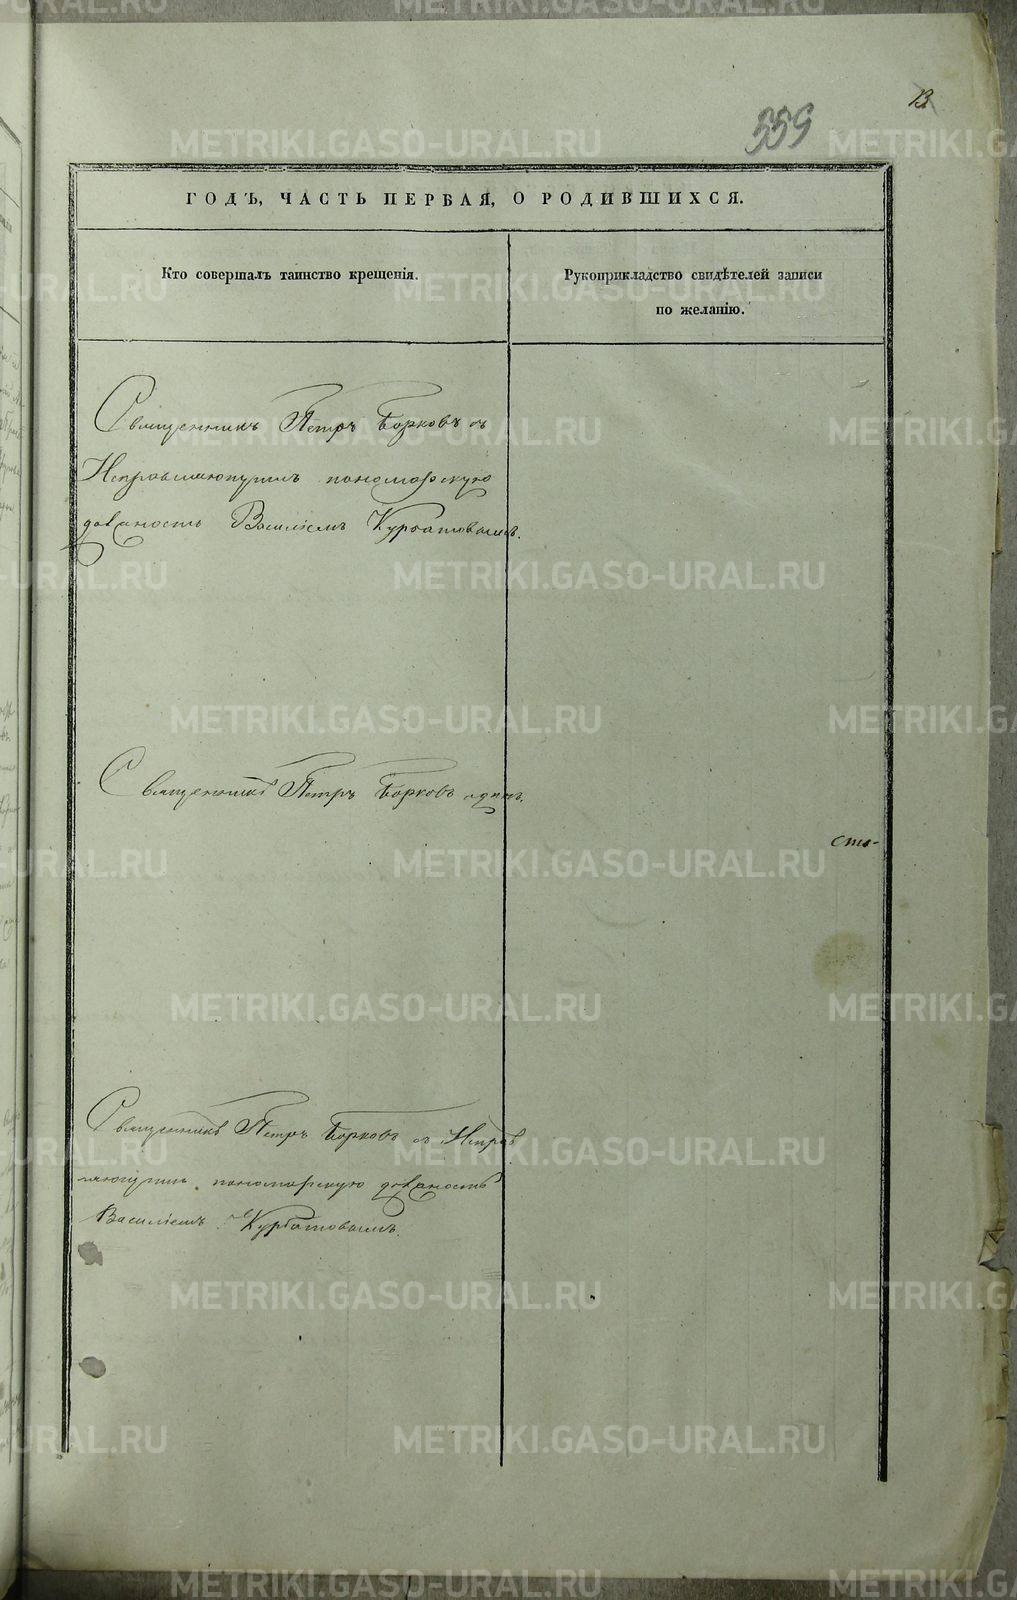 13
559
ГОДЪ, ЧАСТЬ ПЕРВАЯ, О РОДИВШИХСЯ.
Кто совершалъ таинство крещенія.
Рукоприкладство свидѣтелей записи
по желанію.
Священникъ Петръ Борковъ съ
Исправляющимъ пономарскую
должность Василіемъ Курбатовымъ.
Священникъ Петръ Борковъ одинъ.
сто-
Священникъ Петръ Борковъ съ Исправ
ляющимъ пономарскую должность
Василіемъ Курбатовымъ.
METRIKI.GASO-URAL.RU